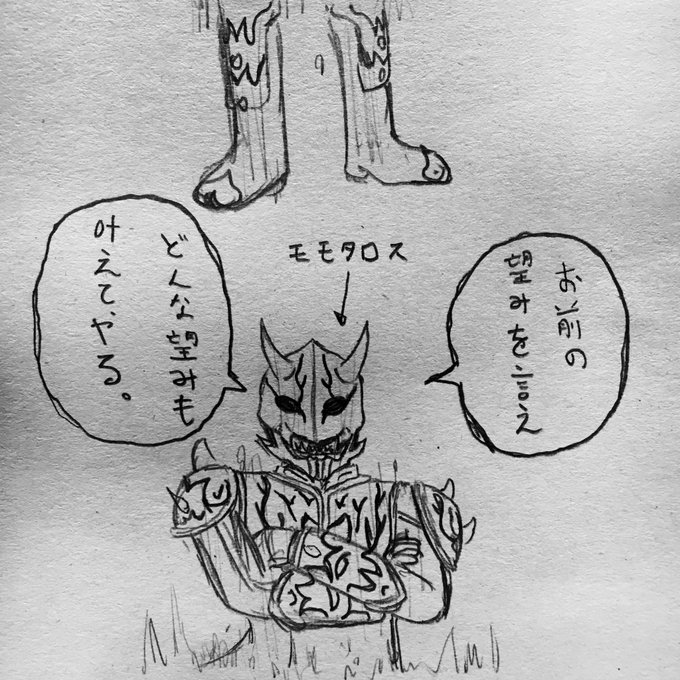 モモタロス
お前の
望みを言え
どんな望みも
叶えてやる。